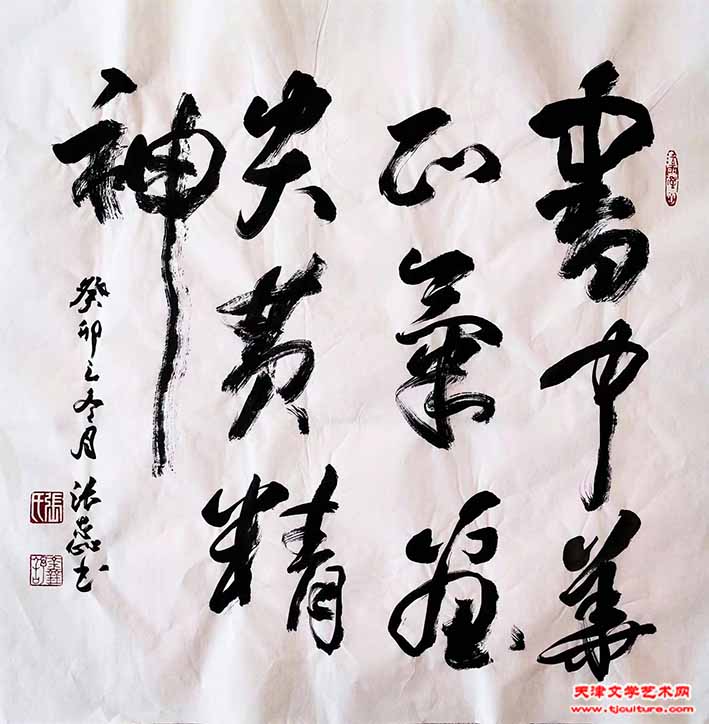 書中華
正氣
炎黄精
神
癸卯之冬月 张蕊书
天津文学艺术网
www.tjculture.com